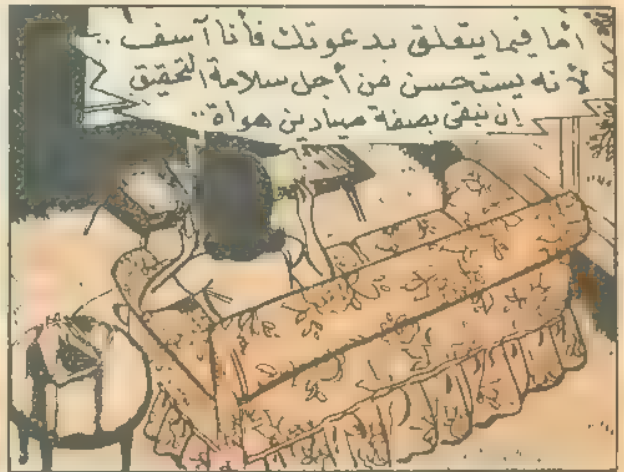 أما فيما يتعلق بدعوتك فأنا آسف ..
لأنه يستحسن من أجل سلامة التحقيق
ان نبقى بصفة صيادين هواة ..